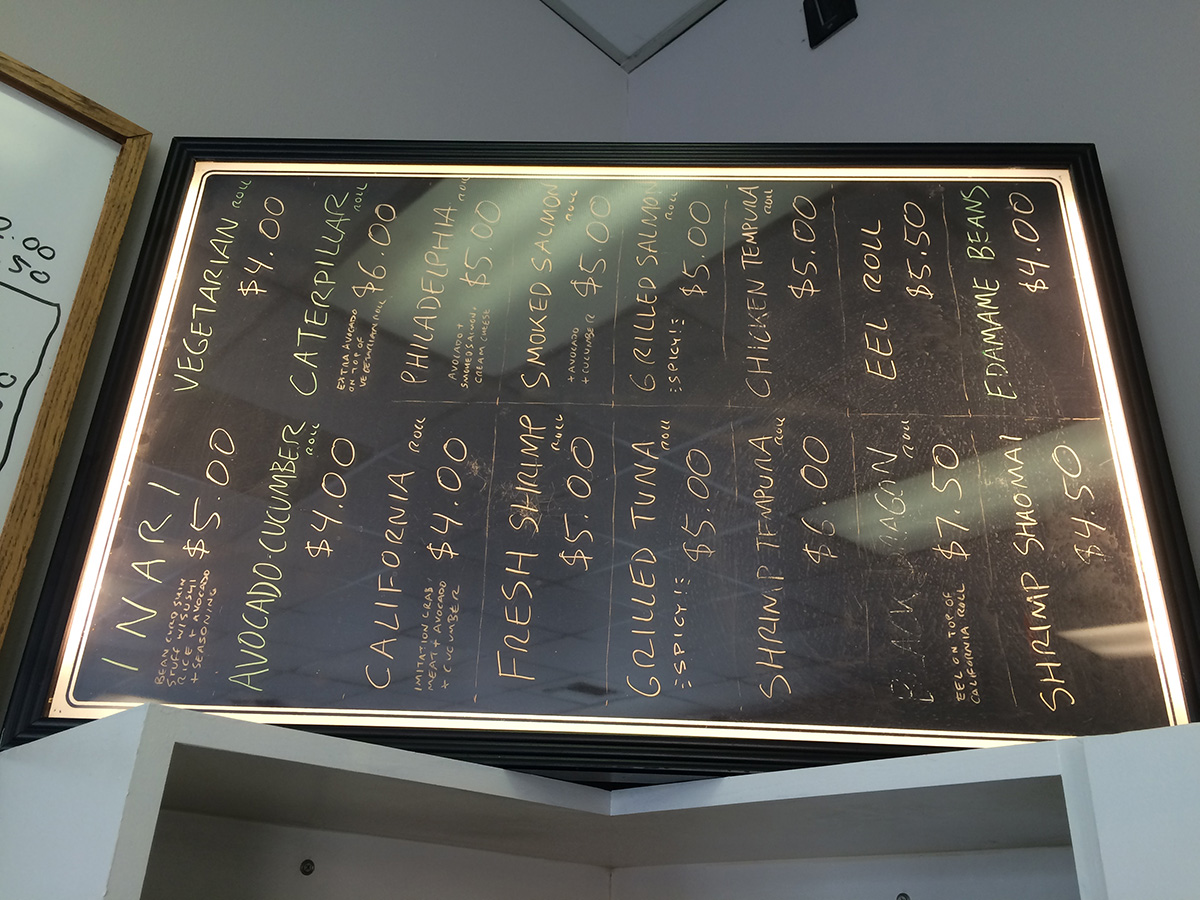 INARI
BEAN CURD SKIN
STUFF W/ SUSHI
RICE + AVOCADO
+ SEASONING
$5.00
AVOCADO CUCUMBER
ROLL
$4.00
CALIFORNIA ROLL
IMITATION CRAB
MEAT + AVOCADO
+ CUCUMBER
$4.00
FRESH SHRIMP
ROLL
$5.00
GRILLED TUNA
ROLL
::SPICY!::
$5.00
SHRIMP TEMPURA
ROLL
$6.00
BLACK DRAGON
ROLL
EEL ON TOP OF
CALIFORNIA ROLL
$7.50
SHRIMP SHAOMAI
$4.50
VEGETARIAN ROLL
$4.00
CATERPILLAR
ROLL
EXTRA AVOCADO
ON TOP OF
VEGETARIAN ROLL
$6.00
PHILADELPHIA ROLL
AVOCADO +
SMOKED SALMON,
CREAM CHEESE
$5.00
SMOKED SALMON
ROLL
+ AVOCADO
+ CUCUMBER
$5.00
GRILLED SALMON
ROLL
::SPICY!::
$5.00
CHICKEN TEMPURA
ROLL
$5.00
EEL ROLL
$5.50
EDAMAME BEANS
$4.00